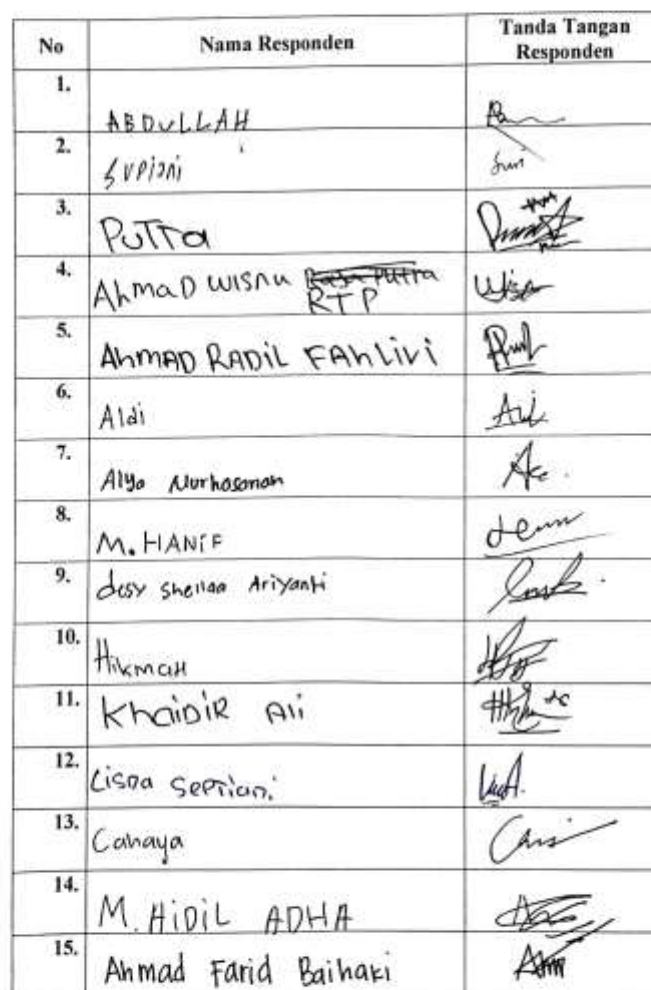 No Nama Responden Tanda Tangan Responden
1. ABDULLAH
2. Supiani
3. PUTra
4. AhmaD WISnu RTP
5. AhmAD RADiL FAhLiVi
6. Aldi
7. Alya Nurhasanah
8. M. HANiF
9. desy Sheilaa Ariyanti
10. HikmaH
11. KhaiDiR Ali
12. Lisna Septiani
13. Cahaya
14. M. HiDiL ADHA
15. Ahmad Farid Baihaki